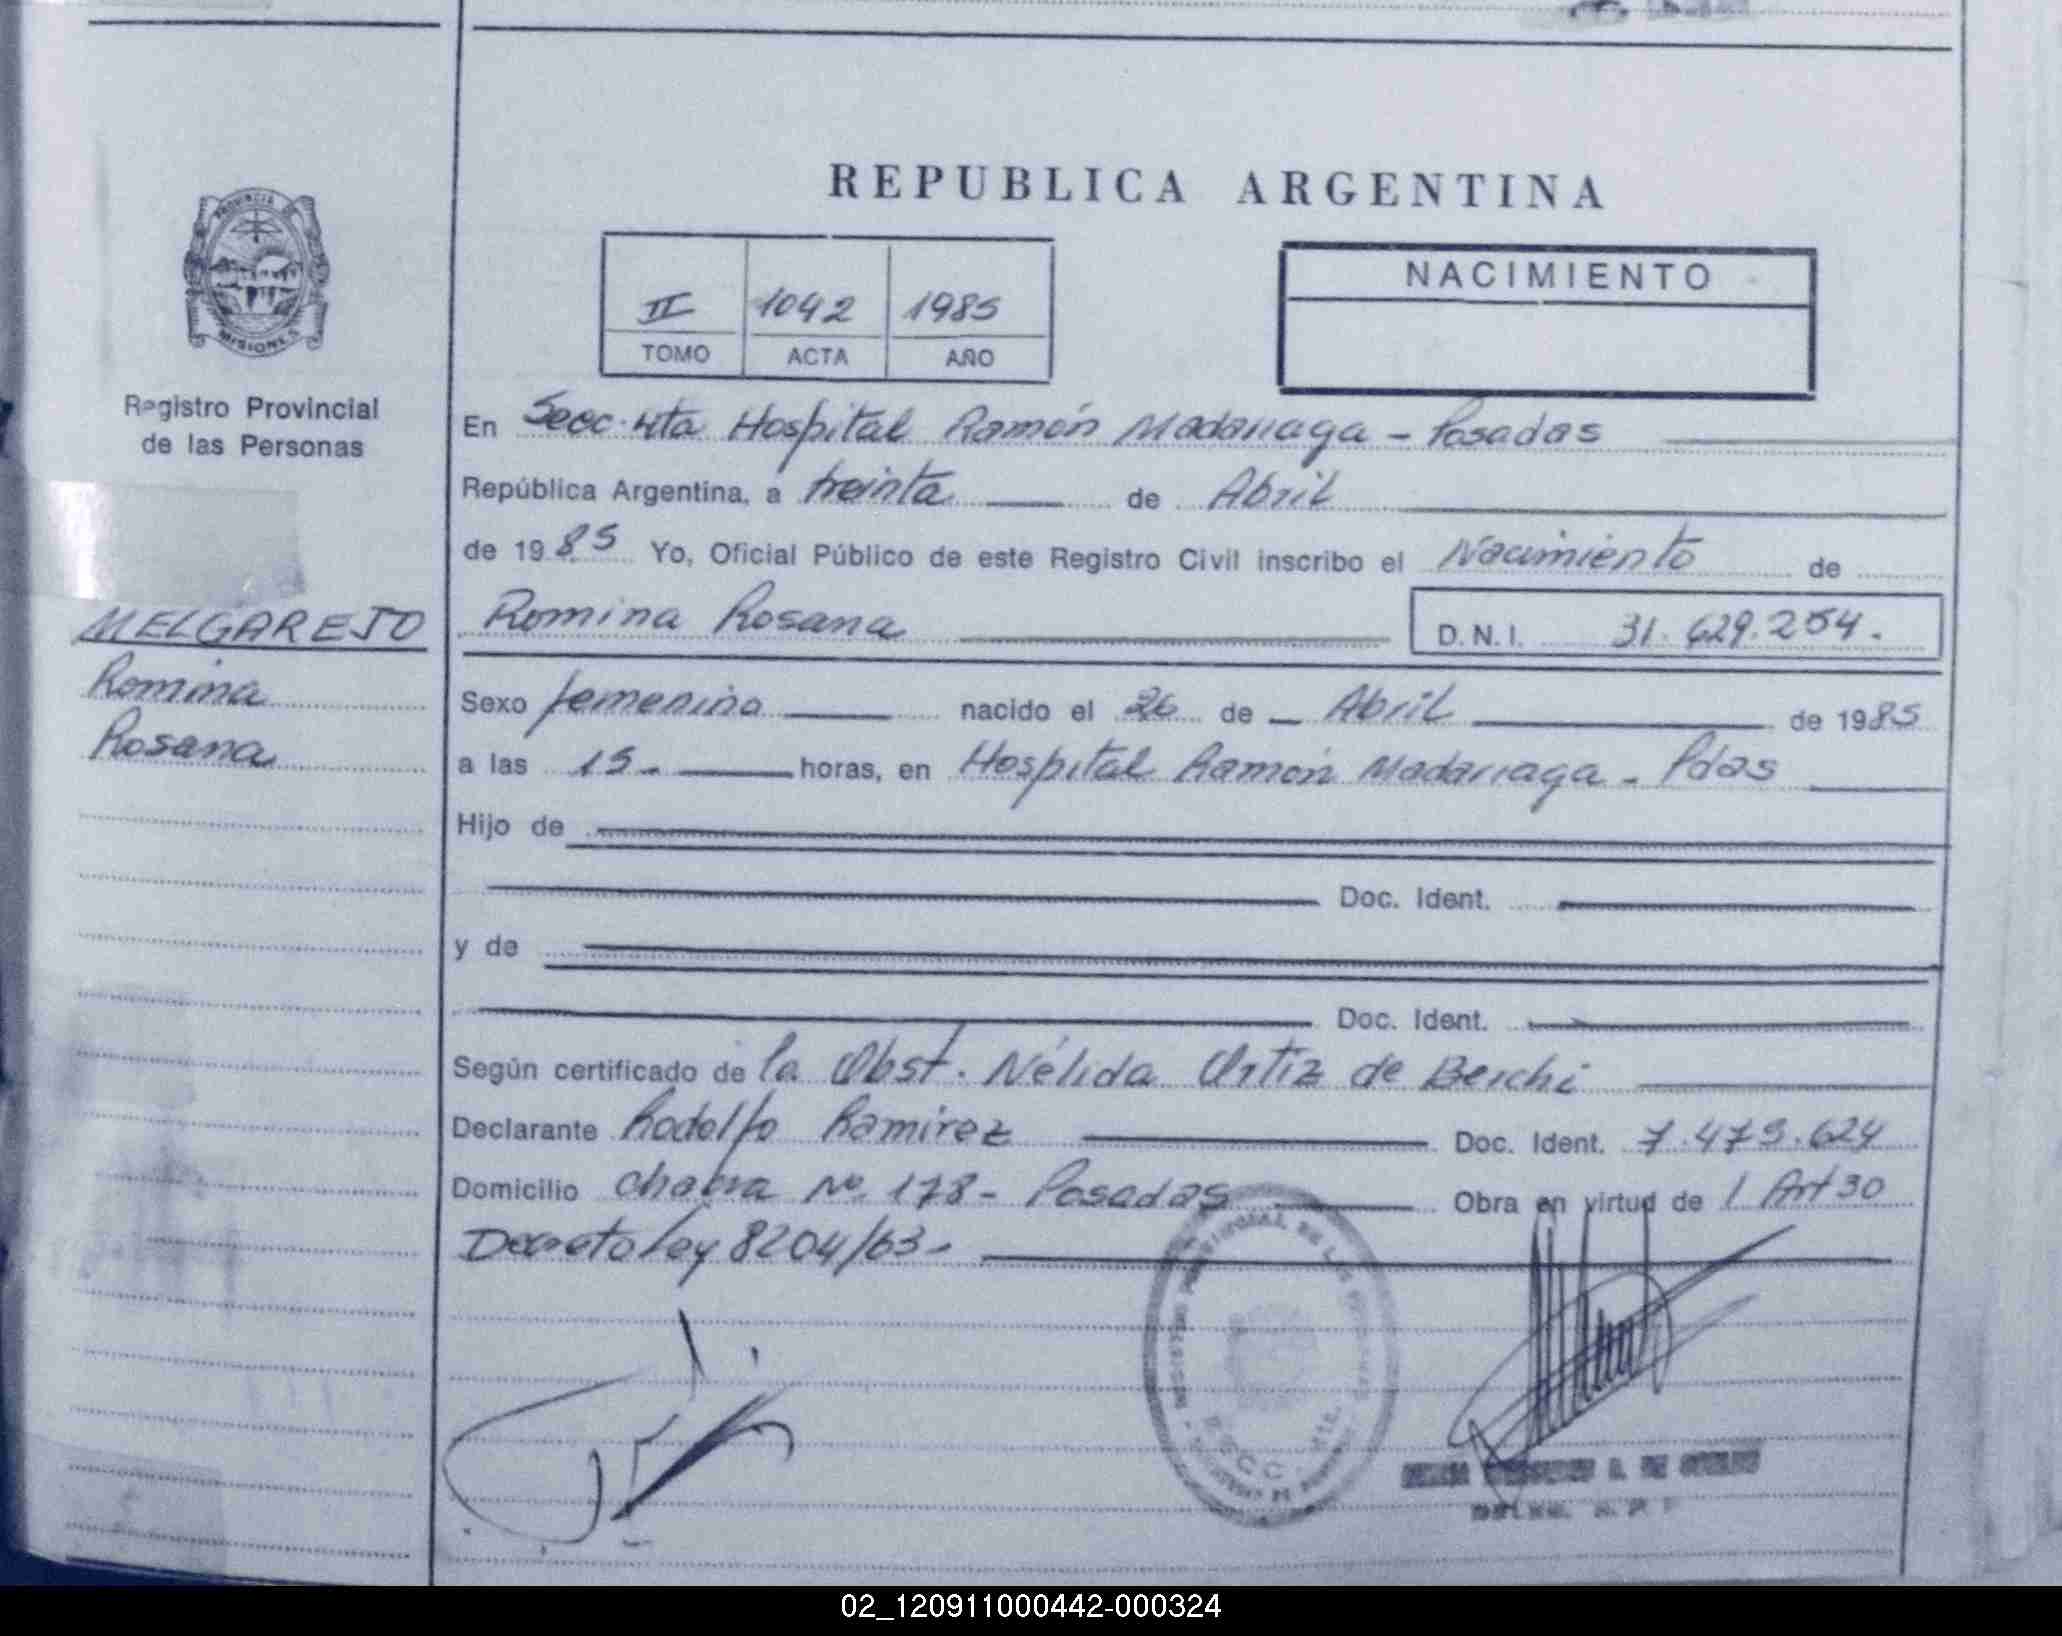 PROVINCIA DE
MISIONES
Registro Provincial
de las Personas
MELGAREJO
Romina
Rosana
REPUBLICA ARGENTINA
II 1042 1985
TOMO ACTA AÑO
NACIMIENTO
En Secc. 4ta Hospital Ramón Madariaga - Posadas
República Argentina, a treinta de Abril
de 1985 Yo, Oficial Público de este Registro Civil inscribo el Nacimiento de
Romina Rosana D.N.I. 31.629.254.
Sexo femenino nacido el 26 de Abril de 1985
a las 15. horas, en Hospital Ramón Madariaga - Pdas
Hijo de
Doc. Ident.
y de
Doc. Ident.
Según certificado de la Obst. Nélida Ortiz de Berchi
Declarante Rodolfo Ramirez Doc. Ident. 7.475.624
Domicilio Chacra No. 178 - Posadas Obra en virtud de l Art 30
Decreto Ley 8204/63 -
REGISTRO PROVINCIAL DE LAS PERSONAS
SECC. 4ta.
02_120911000442-000324